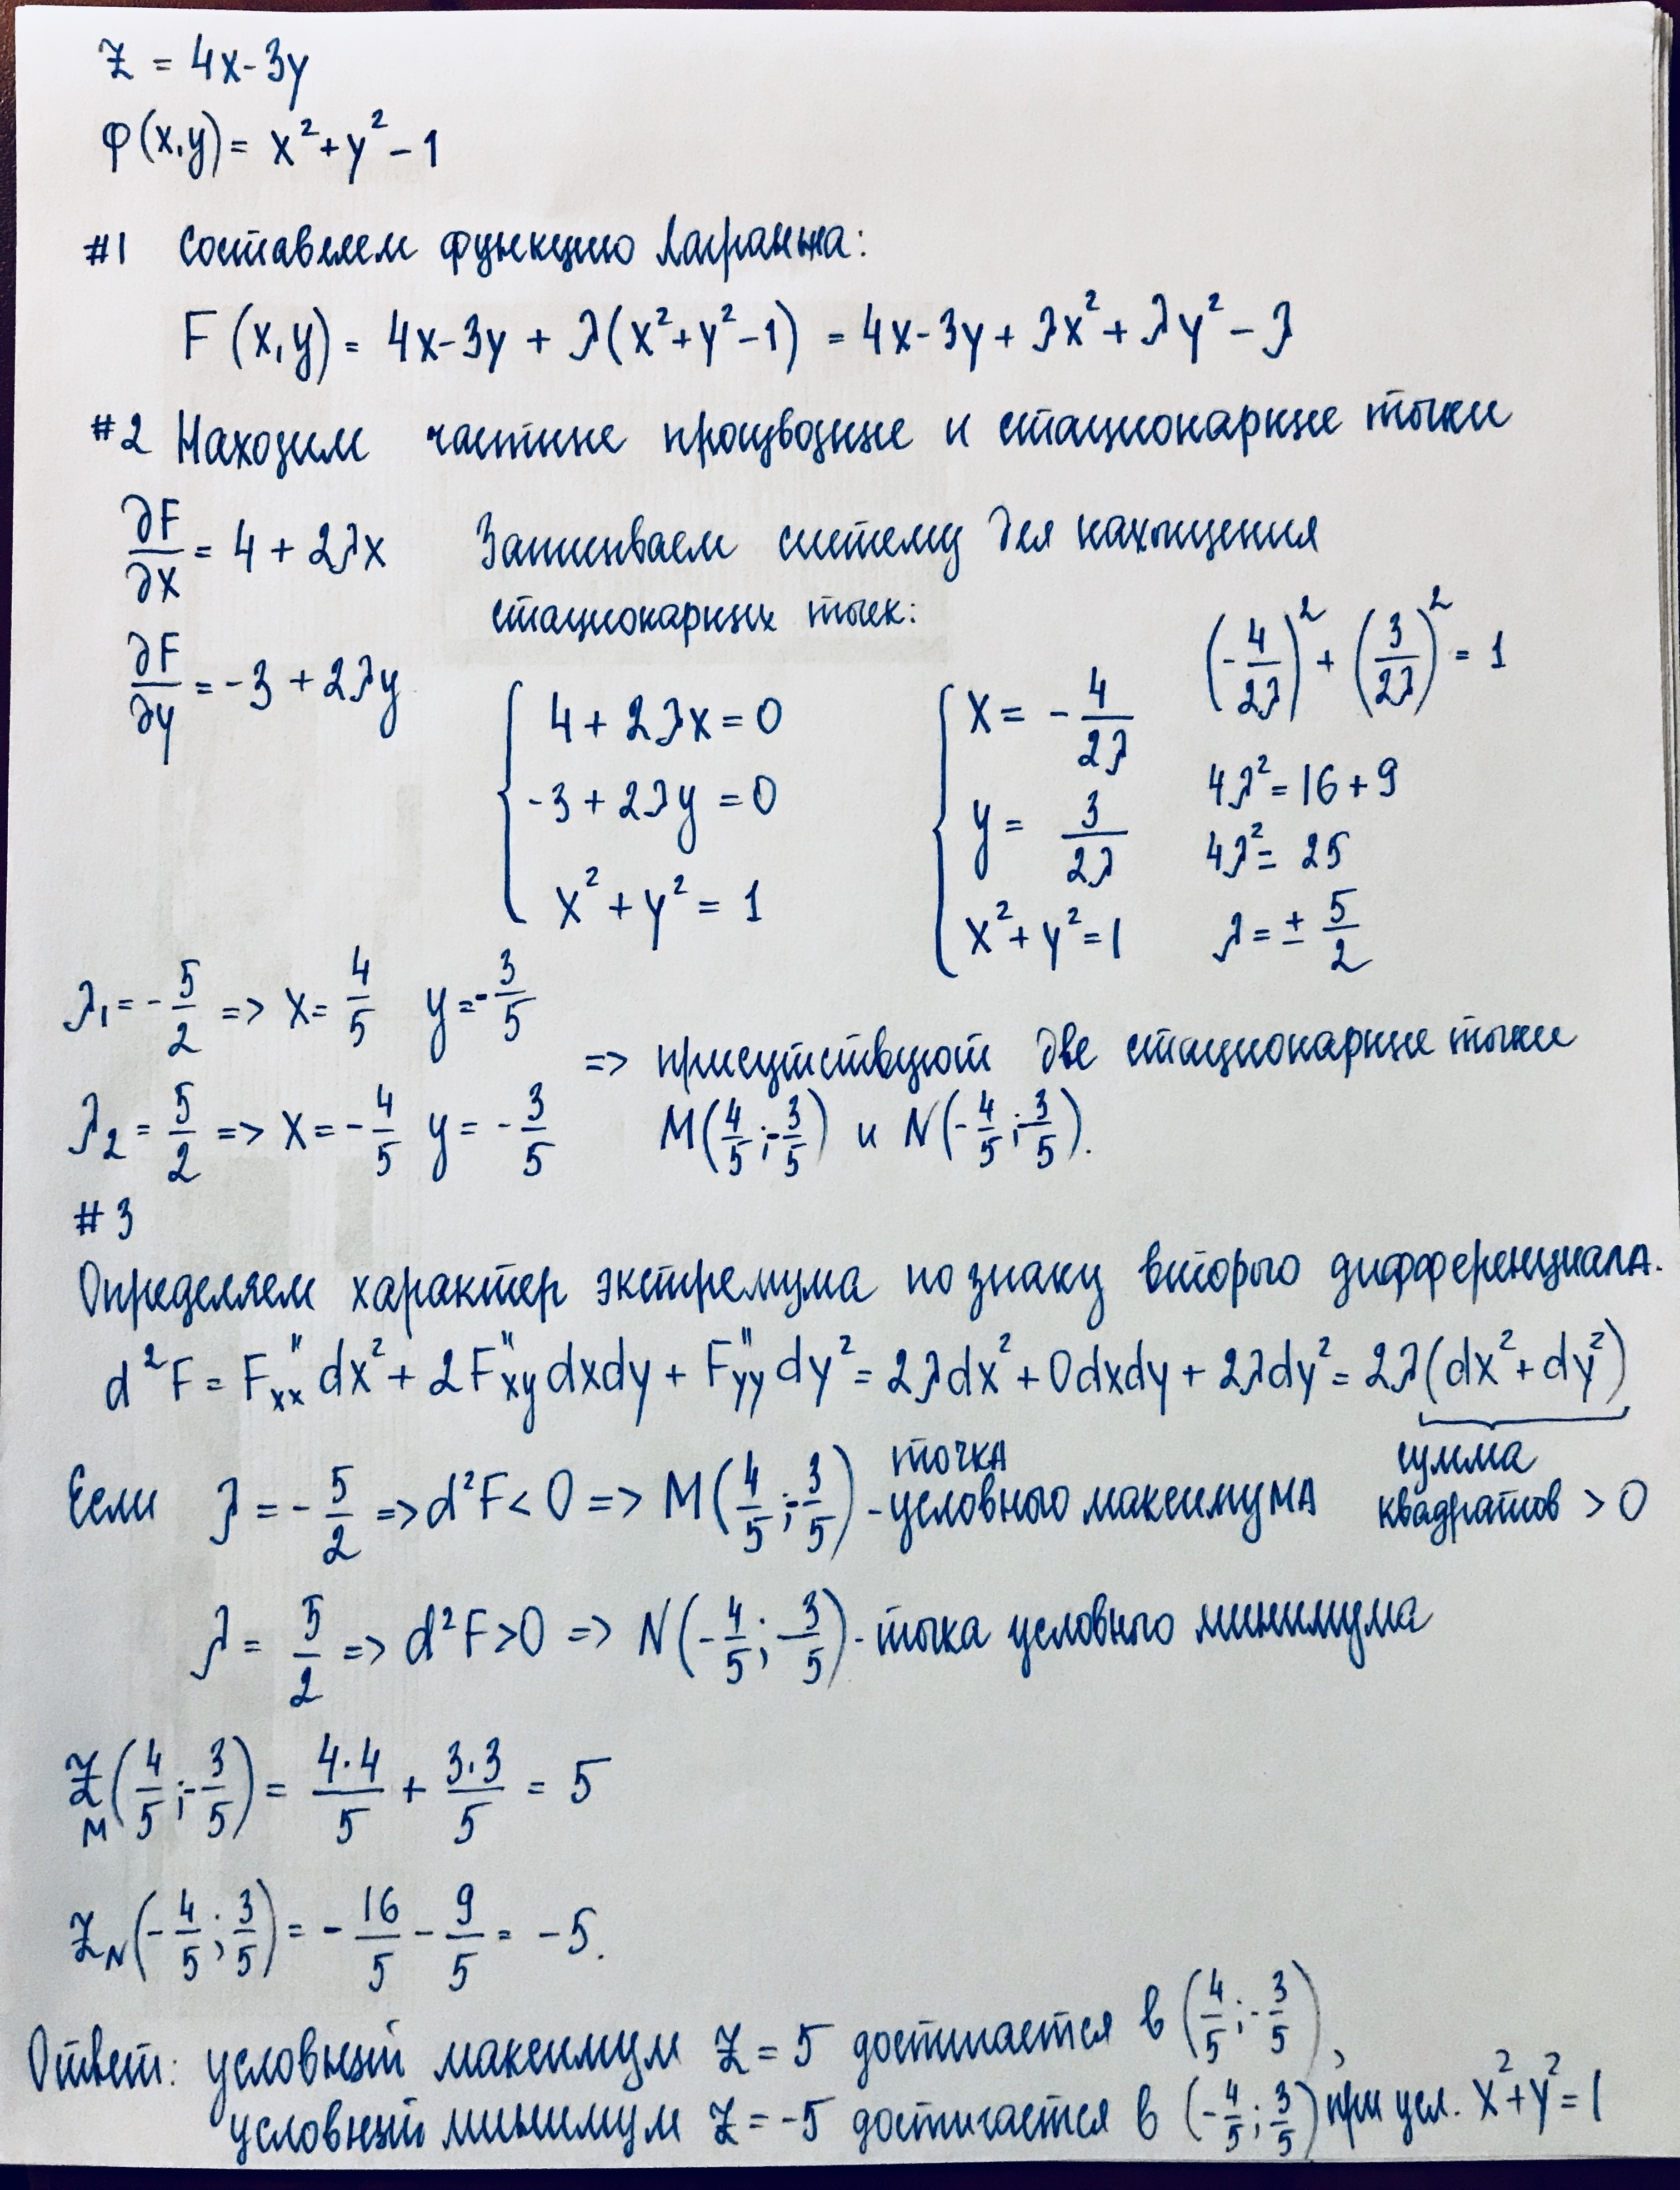 Z = 4x-3y
φ(x,y) = x²+y²-1
#1 Составляем функцию Лагранжа:
F(x,y) = 4x-3y + λ(x²+y²-1) = 4x-3y + λx² + λy² - λ
#2 Находим частные производные и стационарные точки
∂F/∂x = 4 + 2λx Записываем систему для нахождения
стационарных точек:
∂F/∂y = -3 + 2λy
{ 4 + 2λx = 0
-3 + 2λy = 0
x² + y² = 1
{ x = -4/2λ
y = 3/2λ
x² + y² = 1
(-4/2λ)² + (3/2λ)² = 1
4λ² = 16 + 9
4λ² = 25
λ = ± 5/2
λ₁ = -5/2 => x = 4/5 y = -3/5
λ₂ = 5/2 => x = -4/5 y = -3/5
=> присутствуют две стационарные точки
M(4/5; -3/5) и N(-4/5; -3/5).
#3
Определяем характер экстремума по знаку второго дифференциала.
d²F = F''xx dx² + 2F''xy dxdy + F''yy dy² = 2λdx² + 0dxdy + 2λdy² = 2λ(dx² + dy²)
сумма
квадратов > 0
Если λ = -5/2 => d²F < 0 => M(4/5; -3/5) - точка условного максимума
λ = 5/2 => d²F > 0 => N(-4/5; -3/5) - точка условного минимума
Z_M(4/5; -3/5) = 4·4/5 + 3·3/5 = 5
Z_N(-4/5; 3/5) = -16/5 - 9/5 = -5.
Ответ: условный максимум Z = 5 достигается в (4/5; -3/5),
условный минимум Z = -5 достигается в (-4/5; 3/5) при усл. x²+y²=1